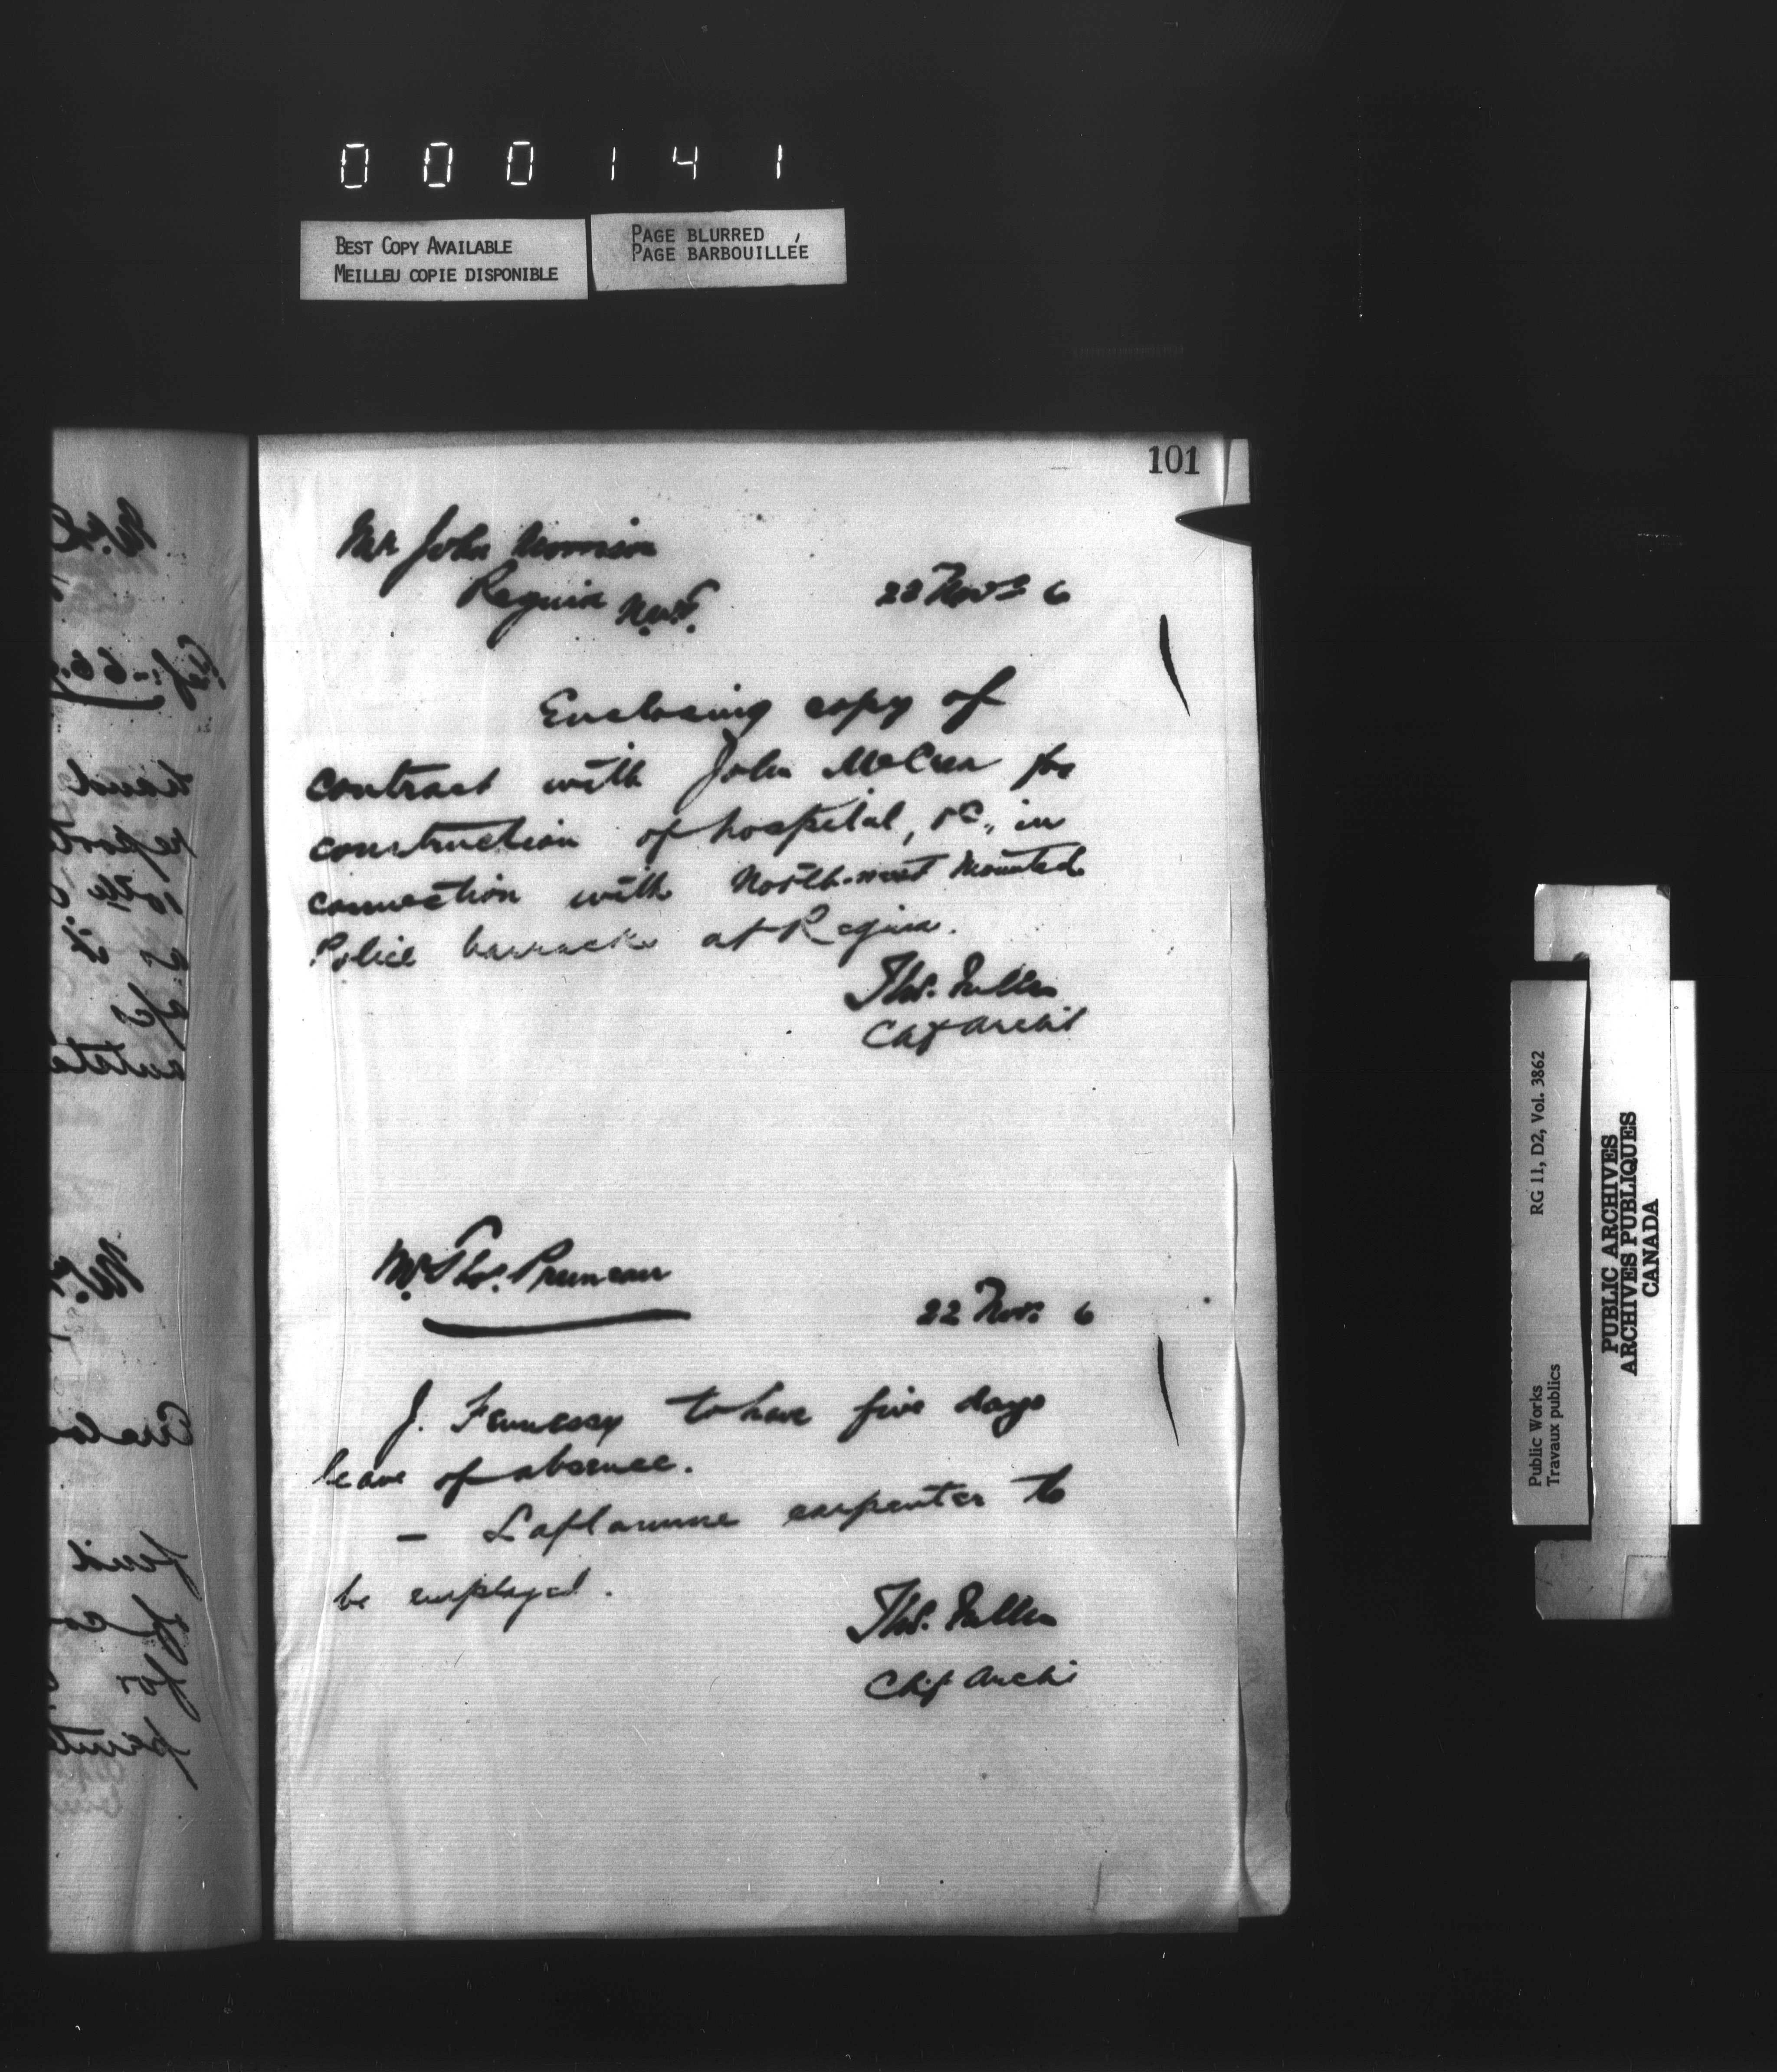 000141
BEST COPY AVAILABLE
MEILLEU COPIE DISPONIBLE
PAGE BLURRED
PAGE BARBOUILLÉE
101
Mr John Morrison
Regina N.W.T.
22 Nov 6
Enclosing copy of
contract with John McCrea for
construction of hospital, &c., in
connection with North-west Mounted
Police barracks at Regina.
Thos. Fuller
Chf Archt
Mr. Thos. Pruneau
22 Nov. 6
J. Fennessy to have five days
leave of absence.
— Laflamme carpenter to
be employed.
Thos. Fuller
Chf Archt
Public Works
Travaux publics
RG 11, D2, Vol. 3862
PUBLIC ARCHIVES
ARCHIVES PUBLIQUES
CANADA